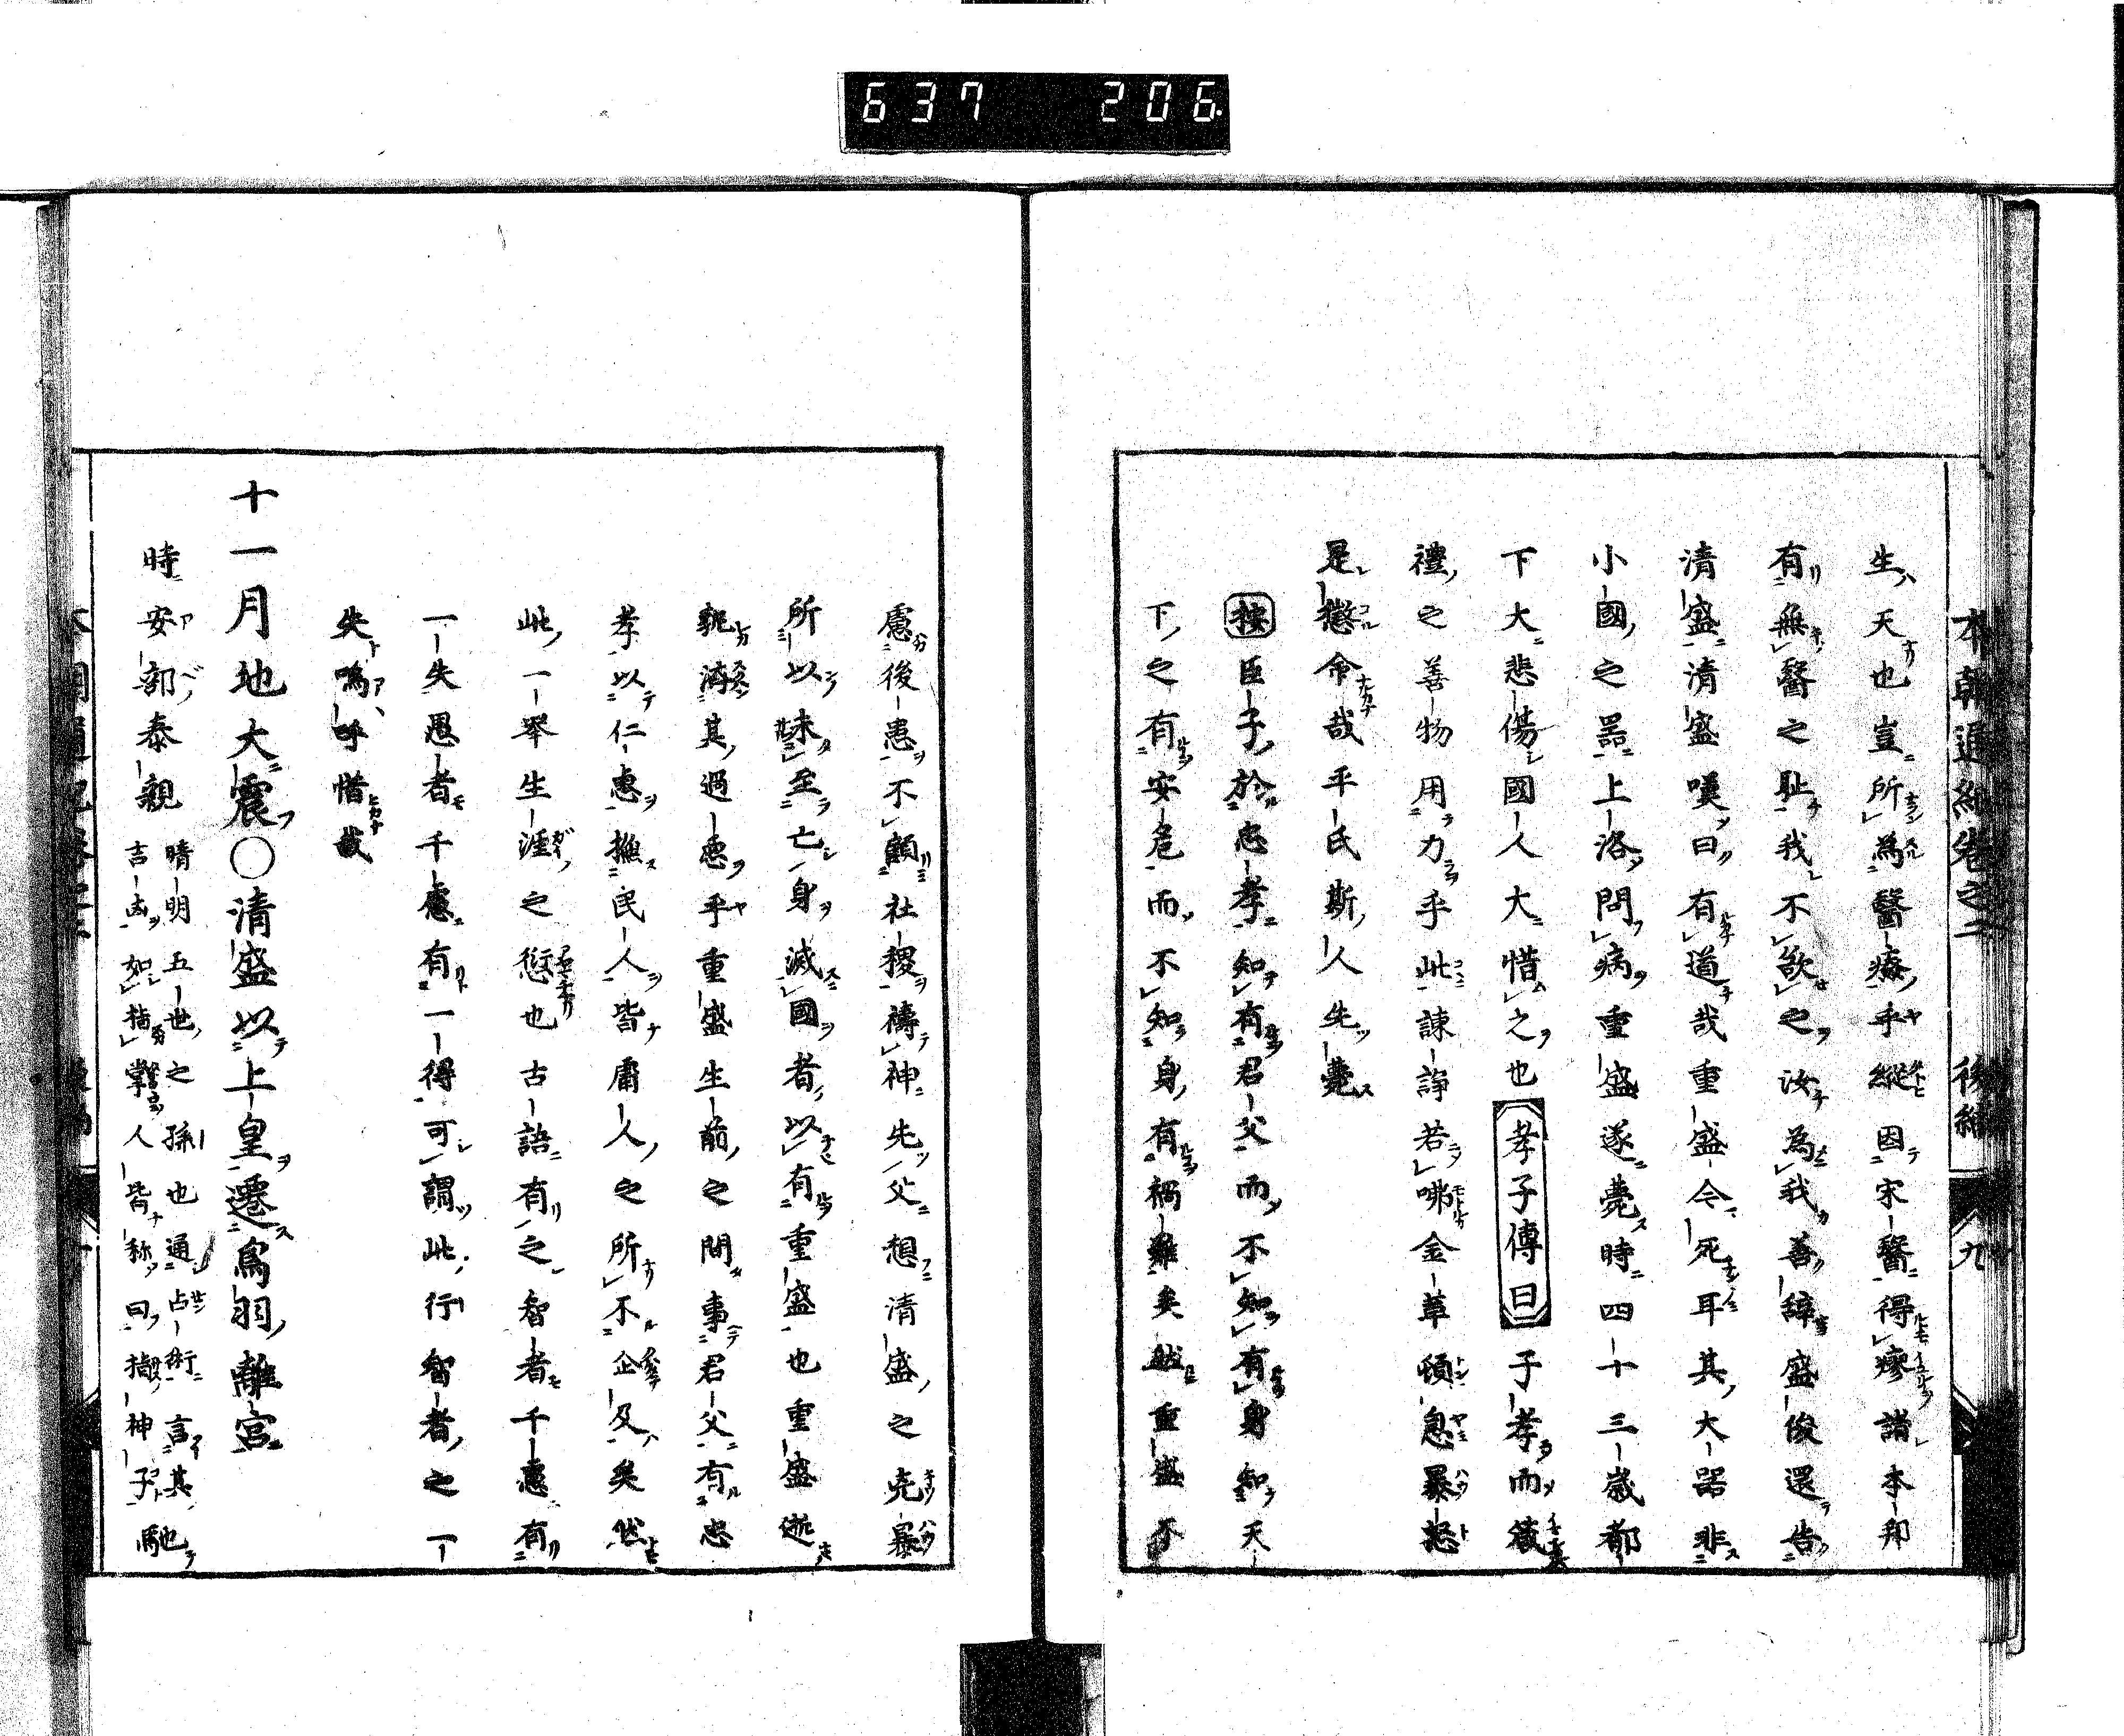 637 206
本朝通紀卷之二 後編 九
生天也豈所為醫療乎縱因宋醫得瘳諸本邦
有無醫之耻我不欲之汝為我善辭盛俊還告
清盛清盛嘆曰有道哉重盛今死耳其大器非
小國之器上洛問病重盛遂薨時四十三歲都
下大悲傷國人大惜之也孝子傳曰子孝而箴
禮之善物用力乎此諫諍若啼金革頓息暴怒
是懲命哉平氏斯人先薨
按臣子於忠孝知有君父而不知有身知天
下之有安危而不知身有禍難矣然重盛不
慮後患不顧社稷禱神先父想清盛之克暴
所以未至亡身滅國者以有重盛也重盛逝
孰濟其過惡乎重盛生前之間事君父有忠
孝以仁惠撫民人皆庸人之所不企及矣然
此一舉生涯之愆也古語有之智者千慮有
一失愚者千慮有一得可謂此行智者之一
失嗚呼惜哉
十一月地大震○清盛以上皇遷鳥羽離宮
時安部泰親晴明五世之孫也通占術言其
吉凶如指掌人皆称曰指神子馳